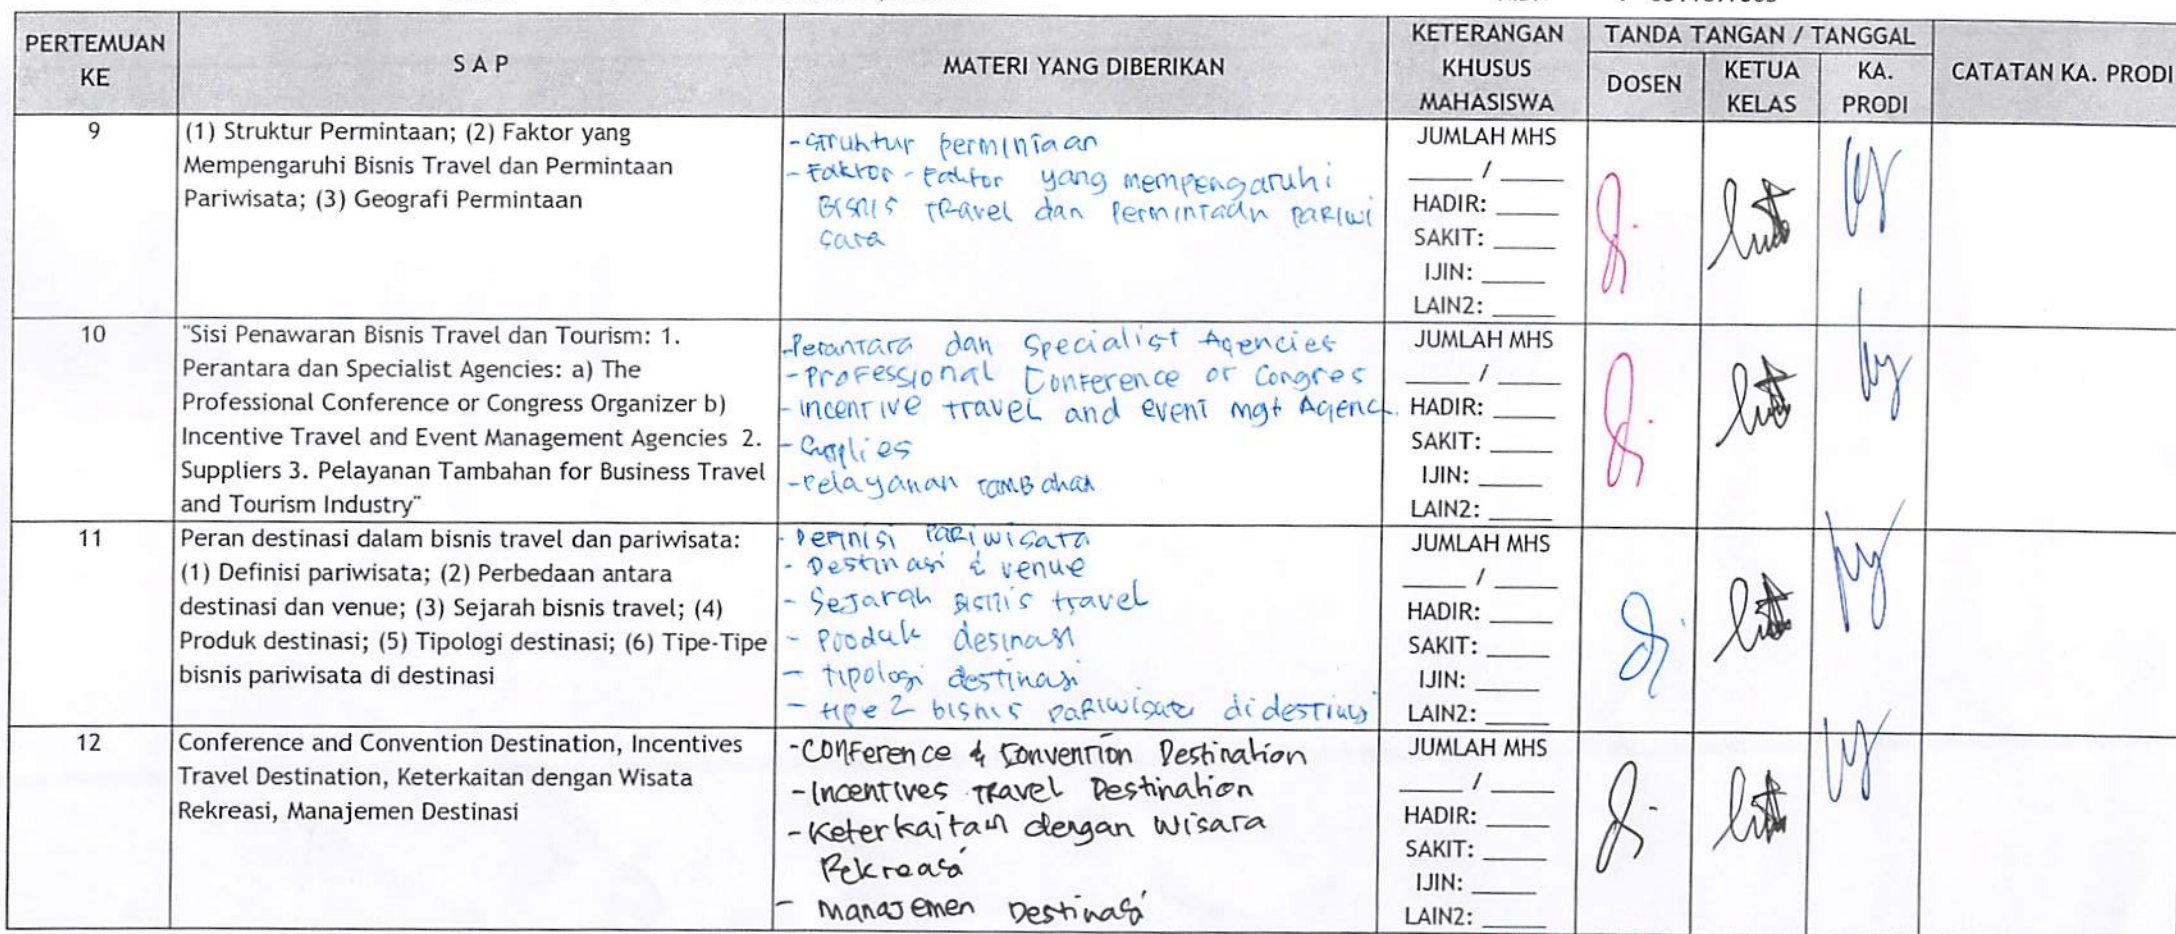 PERTEMUAN KE
S A P
MATERI YANG DIBERIKAN
KETERANGAN KHUSUS MAHASISWA
TANDA TANGAN / TANGGAL
DOSEN
KETUA KELAS
KA. PRODI
CATATAN KA. PRODI
9
(1) Struktur Permintaan; (2) Faktor yang
Mempengaruhi Bisnis Travel dan Permintaan
Pariwisata; (3) Geografi Permintaan
- Struktur permintaan
- Faktor-Faktor yang mempengaruhi
Bisnis Travel dan Permintaan pariwi
sata
JUMLAH MHS
____ / ____
HADIR: ____
SAKIT: ____
IJIN: ____
LAIN2: ____
10
"Sisi Penawaran Bisnis Travel dan Tourism: 1.
Perantara dan Specialist Agencies: a) The
Professional Conference or Congress Organizer b)
Incentive Travel and Event Management Agencies 2.
Suppliers 3. Pelayanan Tambahan for Business Travel
and Tourism Industry"
- Perantara dan Specialist Agencies
- Professional Conference or Congres
- incentive travel and event mgt Agenc.
- Supplies
- Pelayanan tambahan
JUMLAH MHS
____ / ____
HADIR: ____
SAKIT: ____
IJIN: ____
LAIN2: ____
11
Peran destinasi dalam bisnis travel dan pariwisata:
(1) Definisi pariwisata; (2) Perbedaan antara
destinasi dan venue; (3) Sejarah bisnis travel; (4)
Produk destinasi; (5) Tipologi destinasi; (6) Tipe-Tipe
bisnis pariwisata di destinasi
- Definisi Pariwisata
- Destinasi & venue
- Sejarah Bisnis travel
- Pooduk desinasi
- tipologi destinasi
- tipe2 bisnis pariwisata di destinasi
JUMLAH MHS
____ / ____
HADIR: ____
SAKIT: ____
IJIN: ____
LAIN2: ____
12
Conference and Convention Destination, Incentives
Travel Destination, Keterkaitan dengan Wisata
Rekreasi, Manajemen Destinasi
- Conference & Convention Destination
- Incentives Travel Destination
- Keterkaitan dengan Wisara
Rekreasi
- Manajemen Destinasi
JUMLAH MHS
____ / ____
HADIR: ____
SAKIT: ____
IJIN: ____
LAIN2: ____